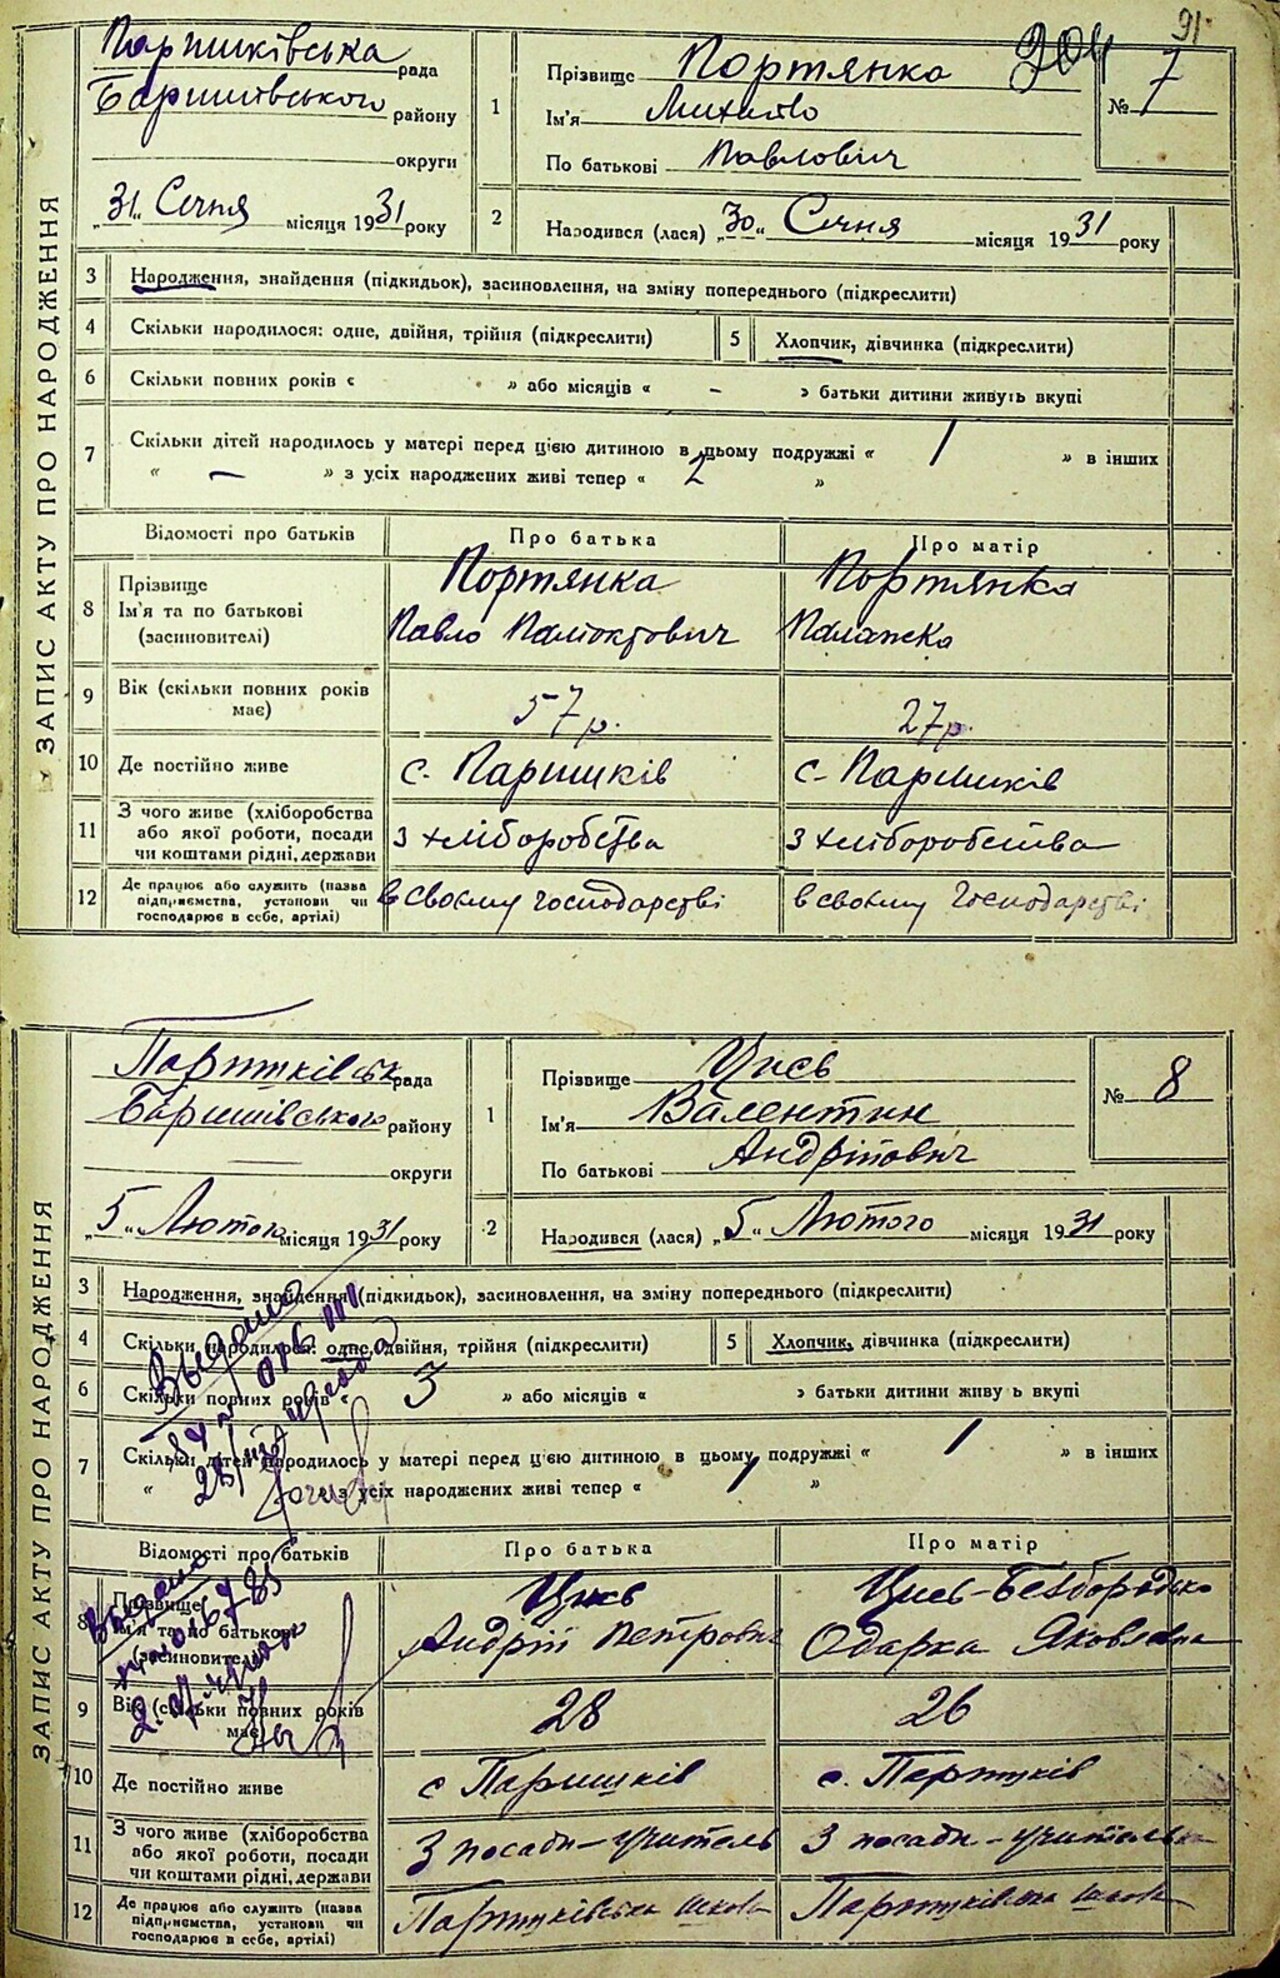 91
204
ЗАПИС АКТУ ПРО НАРОДЖЕННЯ
Паришківська рада
Баришівського району
округи
„31“ Січня місяця 1931 року
1
Прізвище Портянка
Ім'я Михайло
По батькові Павлович
№ 7
2
Народився (лася) „30“ Січня місяця 1931 року
3 Народження, знайдення (підкидьок), засиновлення, на зміну попереднього (підкреслити)
4 Скільки народилося: одне, двійня, трійня (підкреслити)
5 Хлопчик, дівчинка (підкреслити)
6 Скільки повних років « » або місяців « – » батьки дитини живуть вкупі
7 Скільки дітей народилось у матері перед цією дитиною в цьому подружжі « 1 » в інших
« – » з усіх народжених живі тепер « 2 »
Відомості про батьків Про батька Про матір
8 Прізвище Ім'я та по батькові (засиновителі)
Портянка Портянка
Павло Палажка
9 Вік (скільки повних років має) 57 р. 27 р.
10 Де постійно живе с. Паришків с. Паришків
11 З чого живе (хліборобства або якої роботи, посади чи коштами рідні, держави
З хліборобства З хліборобства
12 Де працює або служить (назва підприємства, установи чи господарює в себе, артілі)
в своєму господарстві в своєму господарстві
ЗАПИС АКТУ ПРО НАРОДЖЕННЯ
Паришківськ рада
Баришівського району
округи
„5“ Лютого місяця 1931 року
1
Прізвище Цись
Ім'я Валентин
По батькові Андрійович
№ 8
2
Народився (лася) „5“ Лютого місяця 1931 року
3 Народження, знайдення (підкидьок), засиновлення, на зміну попереднього (підкреслити)
4 Скільки народилося: одне, двійня, трійня (підкреслити)
5 Хлопчик, дівчинка (підкреслити)
6 Скільки повних років « 3 » або місяців « » батьки дитини живуь вкупі
7 Скільки дітей народилось у матері перед цією дитиною в цьому подружжі « 1 » в інших
« » з усіх народжених живі тепер « 1 »
Відомості про батьків Про батька Про матір
8 Прізвище Ім'я та по батькові (засиновителі)
Цись Цись-Безбородько
Андрій Петрович Одарка Яковлевна
9 Вік (скільки повних років має) 28 26
10 Де постійно живе с Паришків с. Паришків
11 З чого живе (хліборобства або якої роботи, посади чи коштами рідні, держави
З посади – учитель З посади – учителька
12 Де працює або служить (назва підприємства, установи чи господарює в себе, артілі)
Паришківська школа Паришківська школа